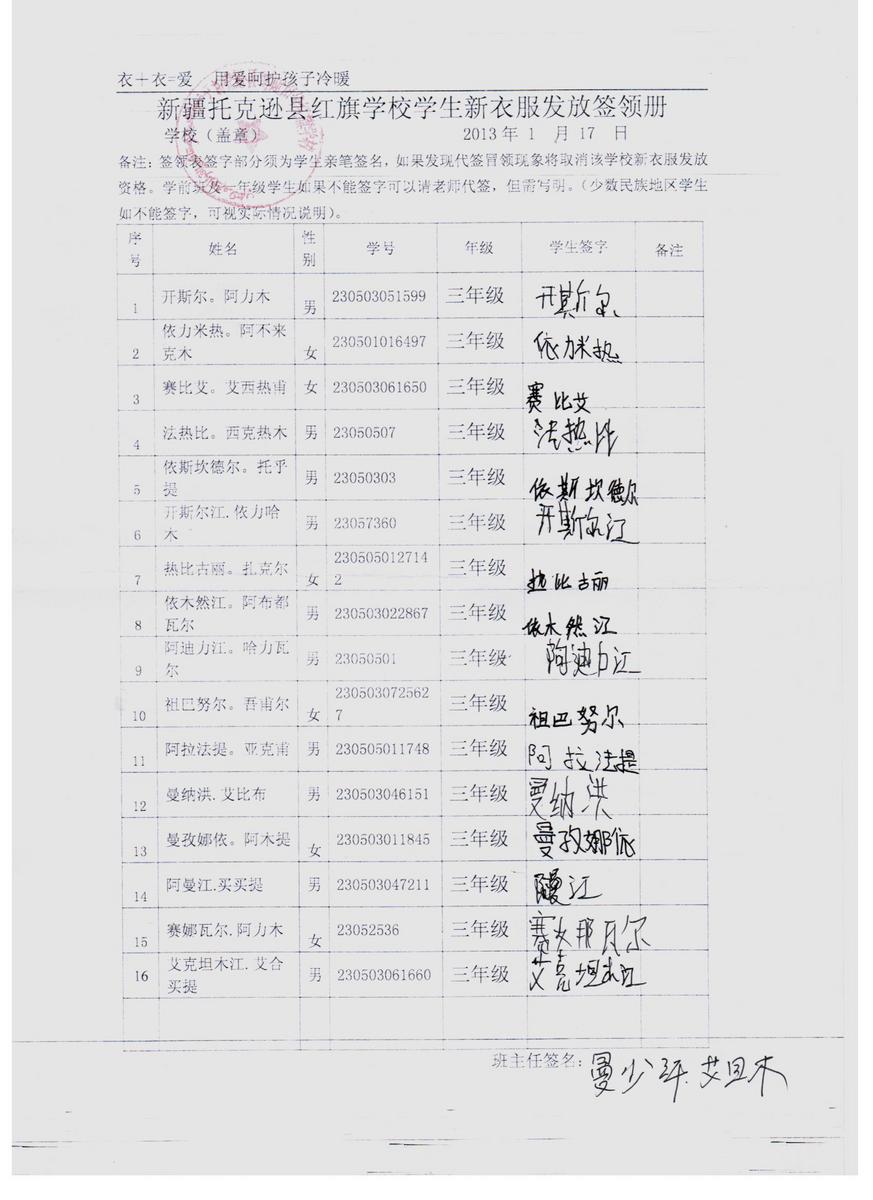 衣＋衣=爱 用爱呵护孩子冷暖
新疆托克逊县红旗学校学生新衣服发放签领册
学校（盖章） 2013年 1 月 17 日
备注：签领表签字部分须为学生亲笔签名，如果发现代签冒领现象将取消该学校新衣服发放
资格。学前班及一年级学生如果不能签字可以请老师代签，但需写明。（少数民族地区学生
如不能签字，可视实际情况说明）。
序号 姓名 性别 学号 年级 学生签字 备注
1 开斯尔。阿力木 男 230503051599 三年级 开斯尔
2 依力米热。阿不来克木 女 230501016497 三年级 依力米热
3 赛比艾。艾西热甫 女 230503061650 三年级 赛比艾
4 法热比。西克热木 男 23050507 三年级 法热比
5 依斯坎德尔。托乎提 男 23050303 三年级 依斯坎德尔
6 开斯尔江.依力哈木 男 23057360 三年级 开斯尔江
7 热比古丽。扎克尔 女 2305050127142 三年级 热比古丽
8 依木然江。阿布都瓦尔 男 230503022867 三年级 依木然江
9 阿迪力江。哈力瓦尔 男 23050501 三年级 阿迪力江
10 祖巴努尔。吾甫尔 女 2305030725627 三年级 祖巴努尔
11 阿拉法提。亚克甫 男 230505011748 三年级 阿拉法提
12 曼纳洪.艾比布 男 230503046151 三年级 曼纳洪
13 曼孜娜依。阿木提 女 230503011845 三年级 曼孜娜依
14 阿曼江.买买提 男 230503047211 三年级 江
15 赛娜瓦尔.阿力木 女 23052536 三年级 赛娜瓦尔
16 艾克坦木江.艾合买提 男 230503061660 三年级 艾克坦木江
班主任签名：曼少年.艾旦木